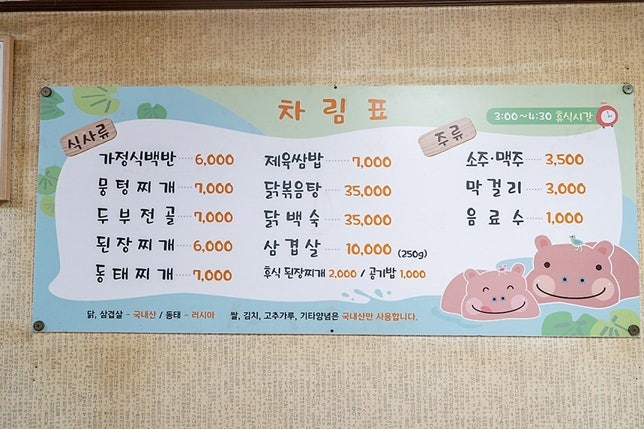 차림표
3:00~4:30 휴식시간
식사류
가정식백반 6,000
뭉텅찌개 7,000
두부전골 7,000
된장찌개 6,000
동태찌개 7,000
제육쌈밥 7,000
닭볶음탕 35,000
닭백숙 35,000
삼겹살 10,000 (250g)
후식 된장찌개 2,000 / 공기밥 1,000
주류
소주·맥주 3,500
막걸리 3,000
음료수 1,000
닭, 삼겹살 - 국내산 / 동태 - 러시아 쌀, 김치, 고추가루, 기타양념은 국내산만 사용합니다.